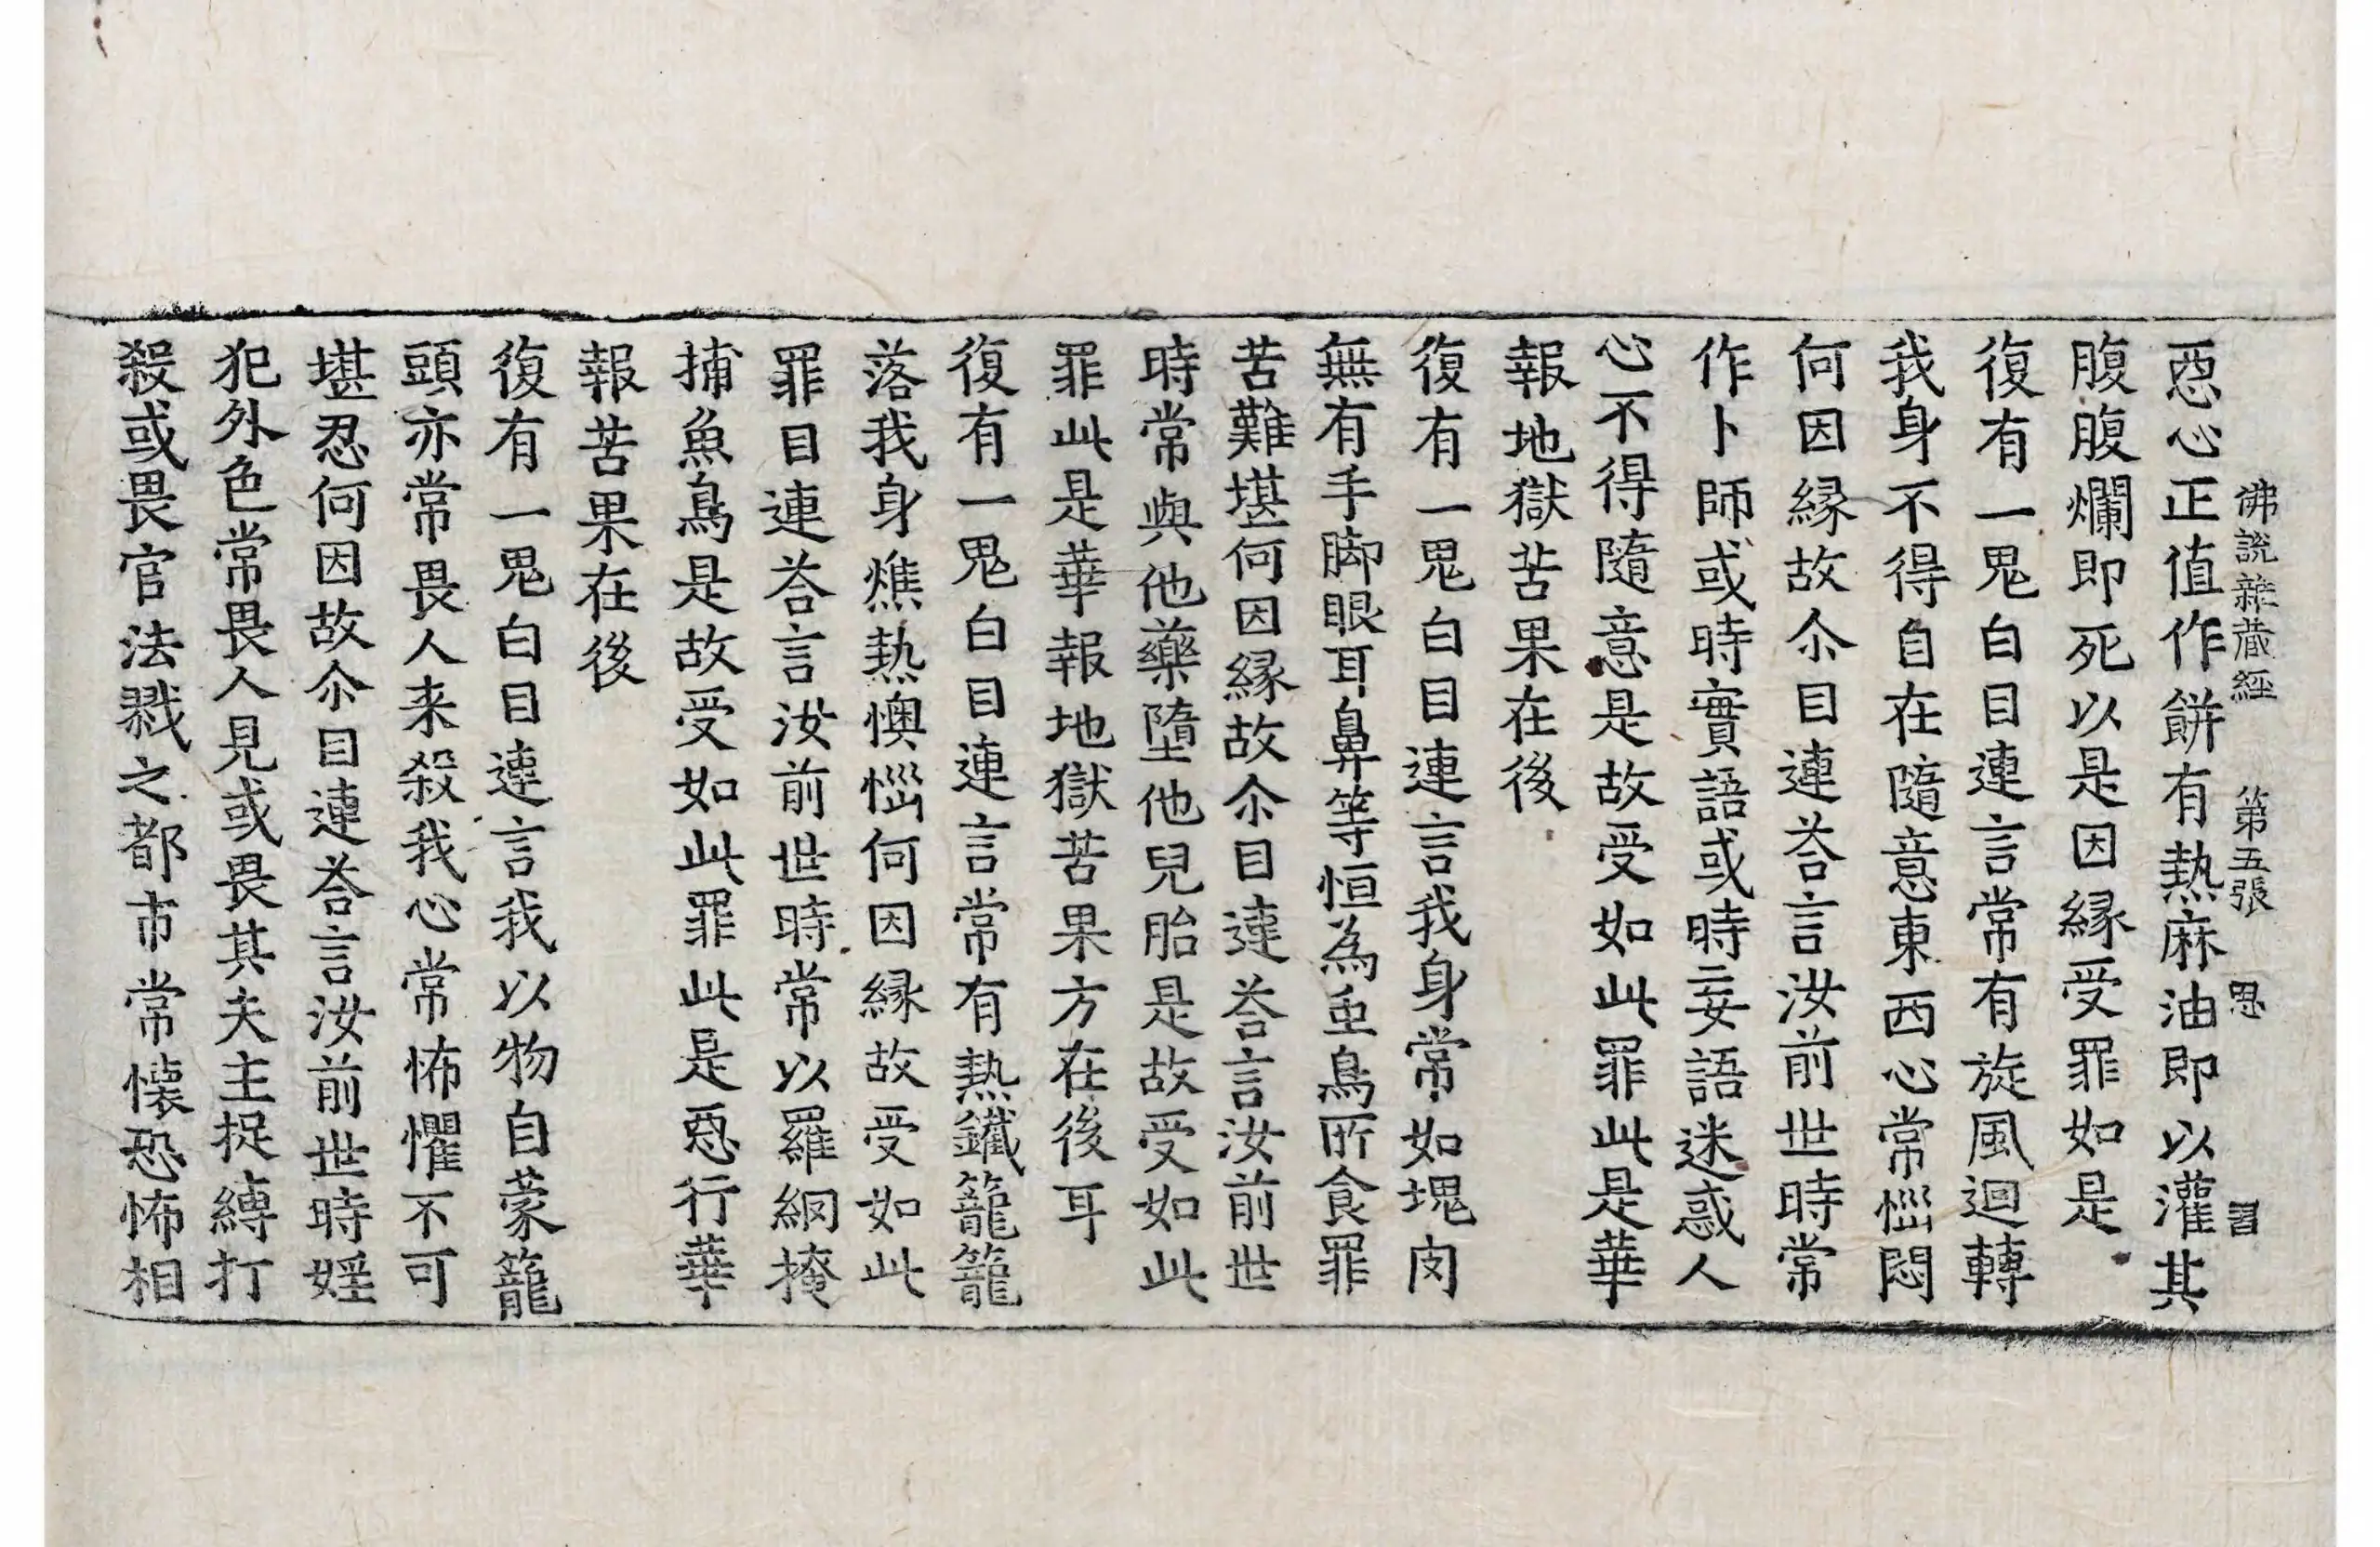 佛說雜藏經 第五張 思 習
惡心正值作餅有熱麻油即以灌其
腹腹爛即死以是因緣受罪如是
復有一鬼白目連言常有旋風迴轉
我身不得自在隨意東西心常惱悶
何因緣故尒目連荅言汝前世時常
作卜師或時實語或時妄語迷惑人
心不得隨意是故受如此罪此是華
報地獄苦果在後
復有一鬼白目連言我身常如塊肉
無有手脚眼耳鼻等恒為虫鳥所食罪
苦難堪何因緣故尒目連荅言汝前世
時常與他藥墮他兒胎是故受如此
罪此是華報地獄苦果方在後耳
復有一鬼白目連言常有熱鐵籠籠
落我身燋熱懊惱何因緣故受如此
罪目連荅言汝前世時常以羅網掩
捕魚鳥是故受如此罪此是惡行華
報苦果在後
復有一鬼白目連言我以物自蒙籠
頭亦常畏人来殺我心常怖懼不可
堪忍何因故尒目連荅言汝前世時婬
犯外色常畏人見或畏其夫主捉縛打
殺或畏官法戮之都市常懷恐怖相